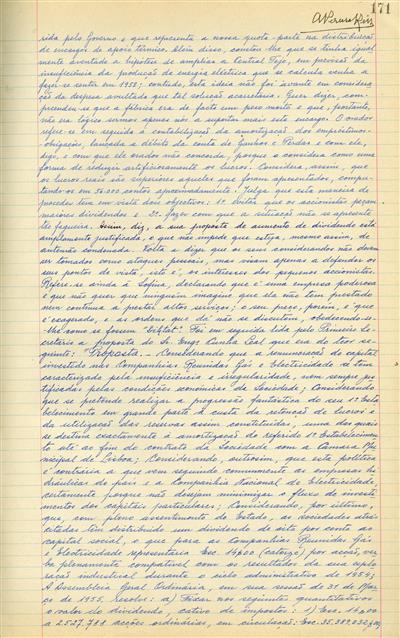 171
rida pelo Governo e que representa a nossa quota-parte na distribuição
de encargos de apoio térmico. Além disso, constou-lhe que se tinha igual-
mente aventado a hipótese de se ampliar a Central Tejo, em previsão da
insuficiência da produção de energia eléctrica que se calcula venha a
fazer-se sentir em 1958; contudo, esta ideia não foi avante em considera-
ção da despesa avultada que tal solução acarretaria. Quere dizer, com-
preendeu-se que a fábrica era de facto um peso morto e que, portanto,
não era lógico sermos apenas nós a suportar mais este encargo. O orador
refere-se em seguida à contabilização da amortização dos empréstimos-
obrigações, lançada a débito da conta de Ganhos e Perdas e com ela,
diz, e com que ele orador não concorda, porque o considera como uma
forma de reduzir artificiosamente os lucros. Considera, assim, que
os lucros reais são superiores àqueles que foram apresentados, compu-
tando-os em contos aproximadamente. Julga que esta maneira de
proceder tem em vista dois objectivos: 1º Evitar que os accionistas peçam
maiores dividendos e 2º fazer com que a situação não se apresente
tão fagueira. Assim, diz, a sua proposta de aumento de dividendo está
amplamente justificada, o que não impede que esteja, mesmo assim, de
antemão condenada. Volta a dizer que os seus considerandos não devem
ser tomados como ataques pessoais, mas visam apenas a defender os
seus pontos de vista, isto é, os interesses dos pequenos accionistas.
Refere-se ainda à Sofina, declarando que é uma empresa poderosa
e que não quer que ninguém imagine que ela não tem prestado
nem continua a prestar altos serviços; o seu preço, porém, é que
é exagerado, e as ordens que dá não se discutem, obedecendo-se-
-lhe como se fossem "Diktat". Foi em seguida lida pelo Primeiro Se-
cretário a proposta do Sr. Eng. Cunha Leal que era do teor se-
guinte: "Proposta. — Considerando que a remuneração do capital
investido nas Companhias Reunidas Gás e Electricidade se tem
caracterizado pela insuficiência e irregularidade, nem sempre jus-
tificadas pelas condições económicas da Sociedade; Considerando
que se pretende realizar a progressão fantástica do seu 1º Esta-
belecimento em grande parte à custa da retenção de lucros e
da utilização das reservas assim constituídas, uma das quais
se destina exactamente à amortização do referido 1º Estabelecimen-
to até ao fim do contrato da Sociedade com a Câmara Mu-
nicipal de Lisboa; Considerando, outrossim, que esta política
é contrária a que vem seguindo comummente as empresas hi-
dráulicas do país e a Companhia Nacional de Electricidade,
certamente porque não desejam minimizar o fluxo de investi-
mentos dos capitais particulares; Considerando, por último,
que, com pleno assentimento do Estado, as sociedades atrás
citadas têm distribuído um dividendo de oito por cento ao
capital social, o que para as Companhias Reunidas Gás
e Electricidade representaria Esc. 14$00 (catorze) por acção, ver-
ba plenamente compatível com os resultados da sua explo-
ração industrial durante o ciclo administrativo de 1954;
A Assembleia Geral Ordinária, em sua sessão de 31 de Mar-
ço de 1955, resolve: a) Fixar nos seguintes quantitativos
o valor do dividendo, cativo de impostos: 1) Esc. 14$00
a 2.527.788 acções ordinárias, em circulação: